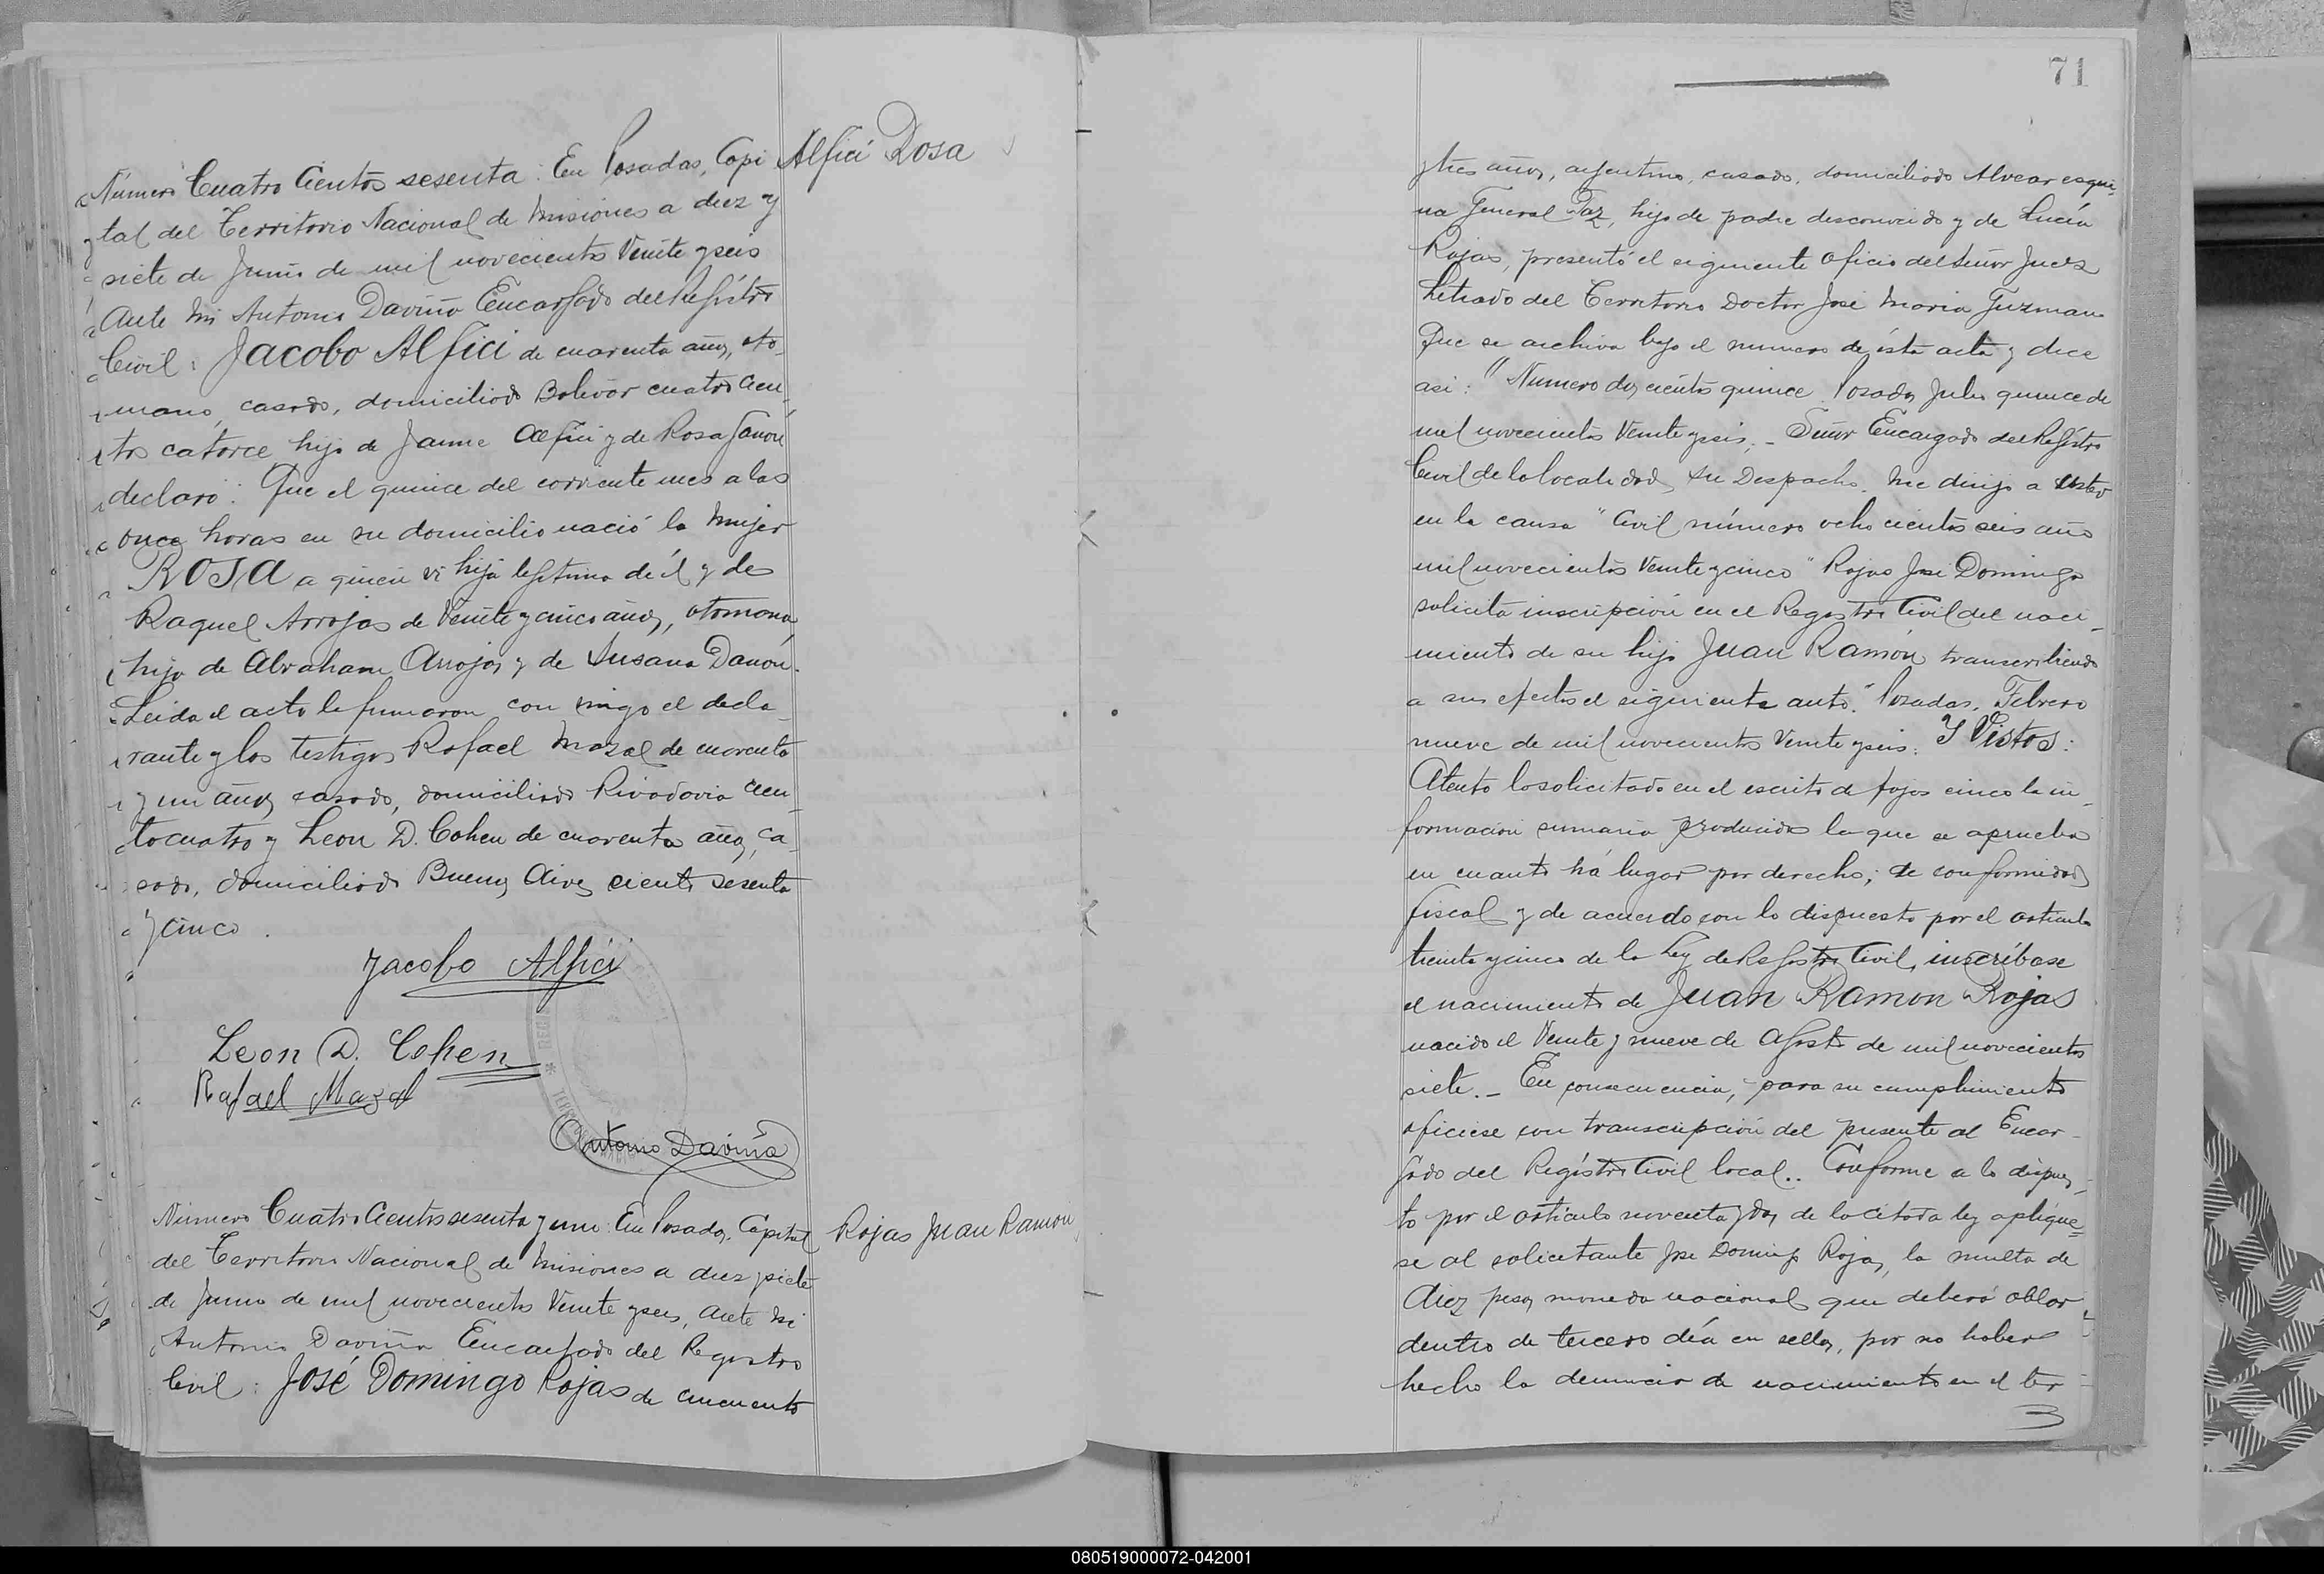 Número Cuatro Cientos sesenta: En Posadas, Capi
tal del Territorio Nacional de Misiones a diez y
siete de Junio de mil novecientos Veinte y seis
Ante Mi Antonio Daviña Encargado del Registro
Civil: Jacobo Alfici de cuarenta años, oto-
mano, casado, domiciliado Bolivar cuatro cien-
tos catorce hijo de Jaime Alfici y de Rosa Janon
declaró: Que el quince del corriente mes a las
once horas en su domicilio nació la Mujer
ROSA a quien vi hija legitima de él y de
Raquel Arrojas de Veinte y cinco años, otomana,
hija de Abraham Arrojas y de Susana Danon.
Leida el acta la firmaron con migo el decla-
rante y los testigos Rafael Mazal de cuarenta
y un años casado, domiciliado Rivadavia cien-
tocuatro y Leon D. Cohen de cuarenta años, ca-
sado, domiciliado Buenos Aires ciento sesenta
y cinco.
Jacobo Alfici
Leon D. Cohen
Rafael Mazal
Antonio Daviña
Alfici Rosa
Número Cuatro Cientos sesenta y uno: En Posadas, Capital
del Territorio Nacional de Misiones a diez y siete
de Junio de mil novecientos Veinte y seis, Ante Mi
Antonio Daviña Encargado del Registro
Civil: José Domingo Rojas de cincuenta
Rojas Juan Ramon
71
y tres años, argentino, casado, domiciliado Alvear esqui-
na General Paz, hijo de padre desconocido y de Lucía
Rojas, presentó el siguiente oficio del Señor Juez
Letrado del Territorio Doctor José Maria Guzman
Que se archiva bajo el numero de ésta acta y dice
asi: "Numero dos cientos quince Posadas Julio quince de
mil novecientos Veinte y seis._ Señor Encargado del Registro
Civil de la localidad, Su Despacho. Me dirijo a Usted
en la causa "Civil número ocho cientos seis año
mil novecientos Veinte y cinco" Rojas Jose Domingo
solicita inscripción en el Registro Civil del naci-
miento de su hijo Juan Ramón, transcribiendo
a sus efectos el siguiente auto." Posadas, Febrero
nueve de mil novecientos Veinte y seis. Y Vistos:
Atento lo solicitado en el escrito de fojas cinco la in-
formacion sumaria producida la que se aprueba
en cuanto há lugar por derecho; de conformidad
fiscal y de acuerdo con lo dispuesto por el articulo
treinta y cinco de la Ley de Registro Civil, inscríbase
el nacimiento de Juan Ramon Rojas
nacido el Veinte y nueve de Agosto de mil novecientos
siete._ En consecuencia, para su cumplimiento
oficiese con transcripción del presente al Encar-
gado del Registro Civil local.. Conforme a lo dispues-
to por el articulo noventa y dos, de la citada ley aplique-
se al solicitante Jose Domingo Rojas, la multa de
diez pesos moneda nacional que deberá oblar
dentro de tercero día en sellos, por no haber
hecho la denuncia de nacimiento en el ter-
080519000072-042001